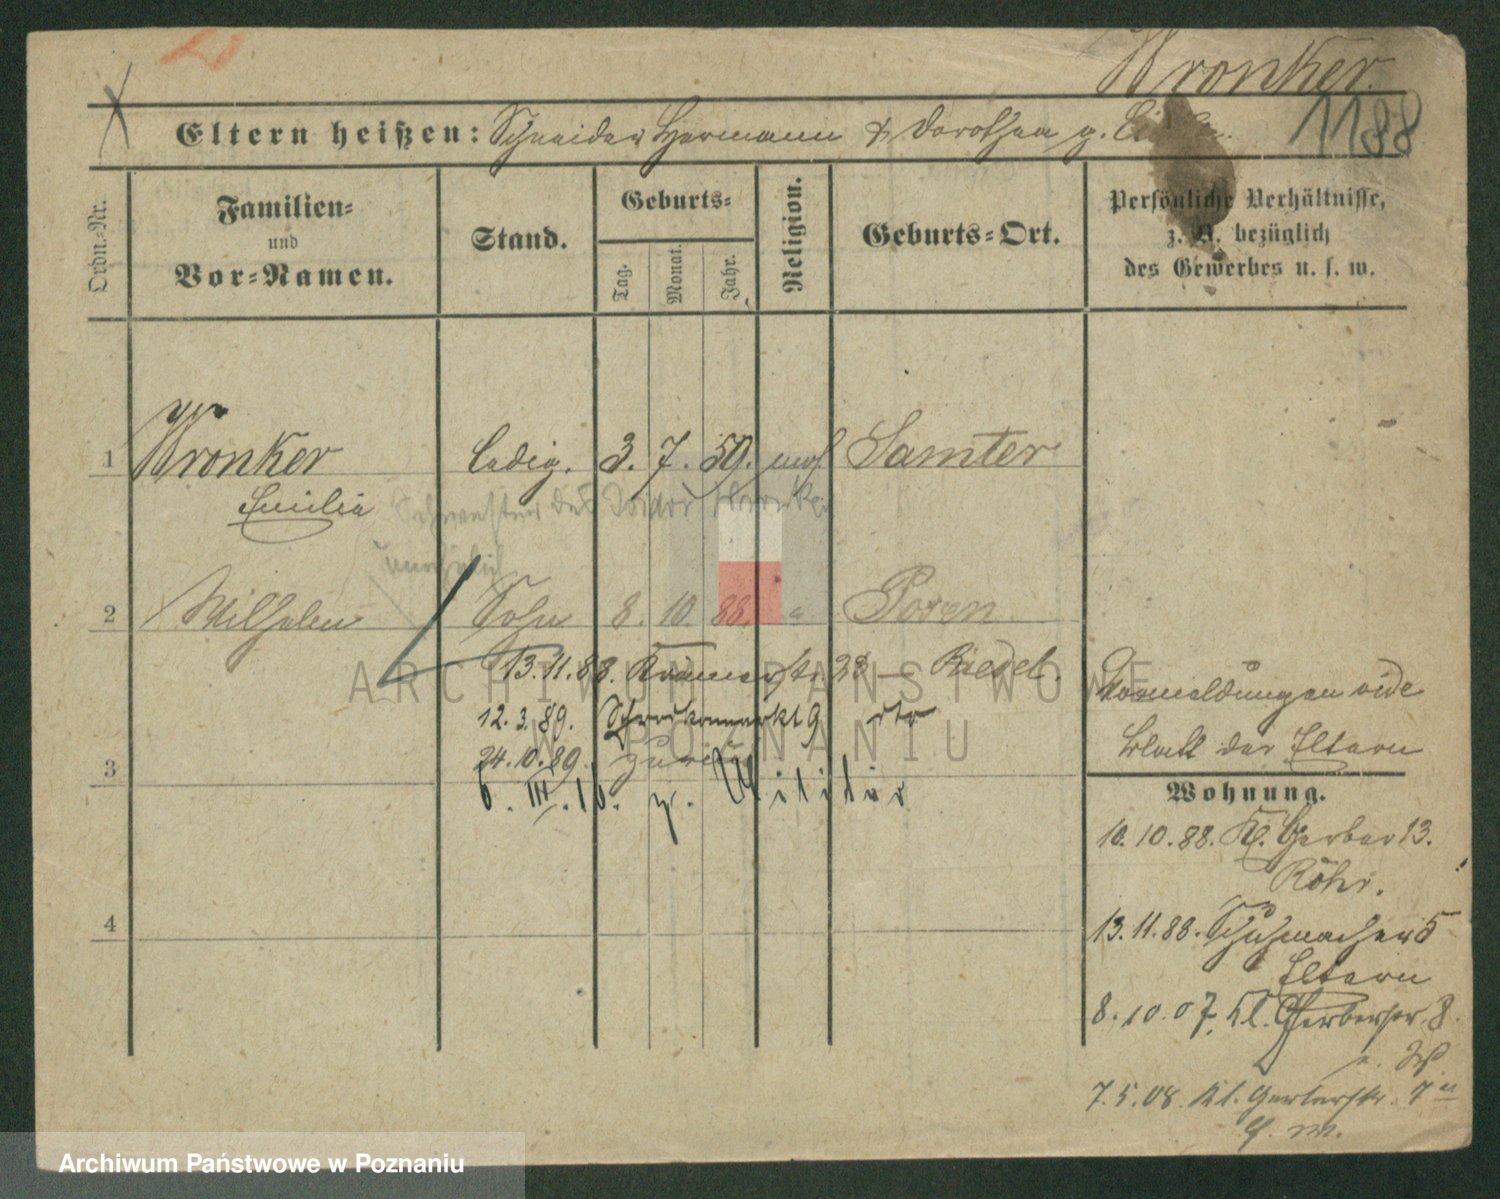 Wronker.
1188
Eltern heißen: Schneider Hermann & Dorothea g.
Ordn.-Nr.
Familien-
und
Vor-Namen.
Stand.
Geburts-
Tag.
Monat.
Jahr.
Religion.
Geburts-Ort.
Persönliche Verhältnisse,
z. B. bezüglich
des Gewerbes u. s. w.
1 Wronker ledig. 3. 7. 59. mos Samter
Emilie Schwester des Isidor Wronker
unehelich
2 Wilhelm Sohn 8. 10. 88. " Posen
13.11.88. Krämerstr. 23 — Riedel.
12.3.89. 9 dto
24.10.89. zurück
3
6. III. 10. z. Militär
4
Anmeldungen vide
Blatt der Eltern
Wohnung.
10.10.88. Kl. Gerber 13.
Röhr.
13.11.88. Schuhmacher 5
Eltern
8.10.07. Kl. Gerberstr. 8.
7.5.08. Kl. Gerberstr. 7
ARCHIWUM PAŃSTWOWE
W POZNANIU
Archiwum Państwowe w Poznaniu